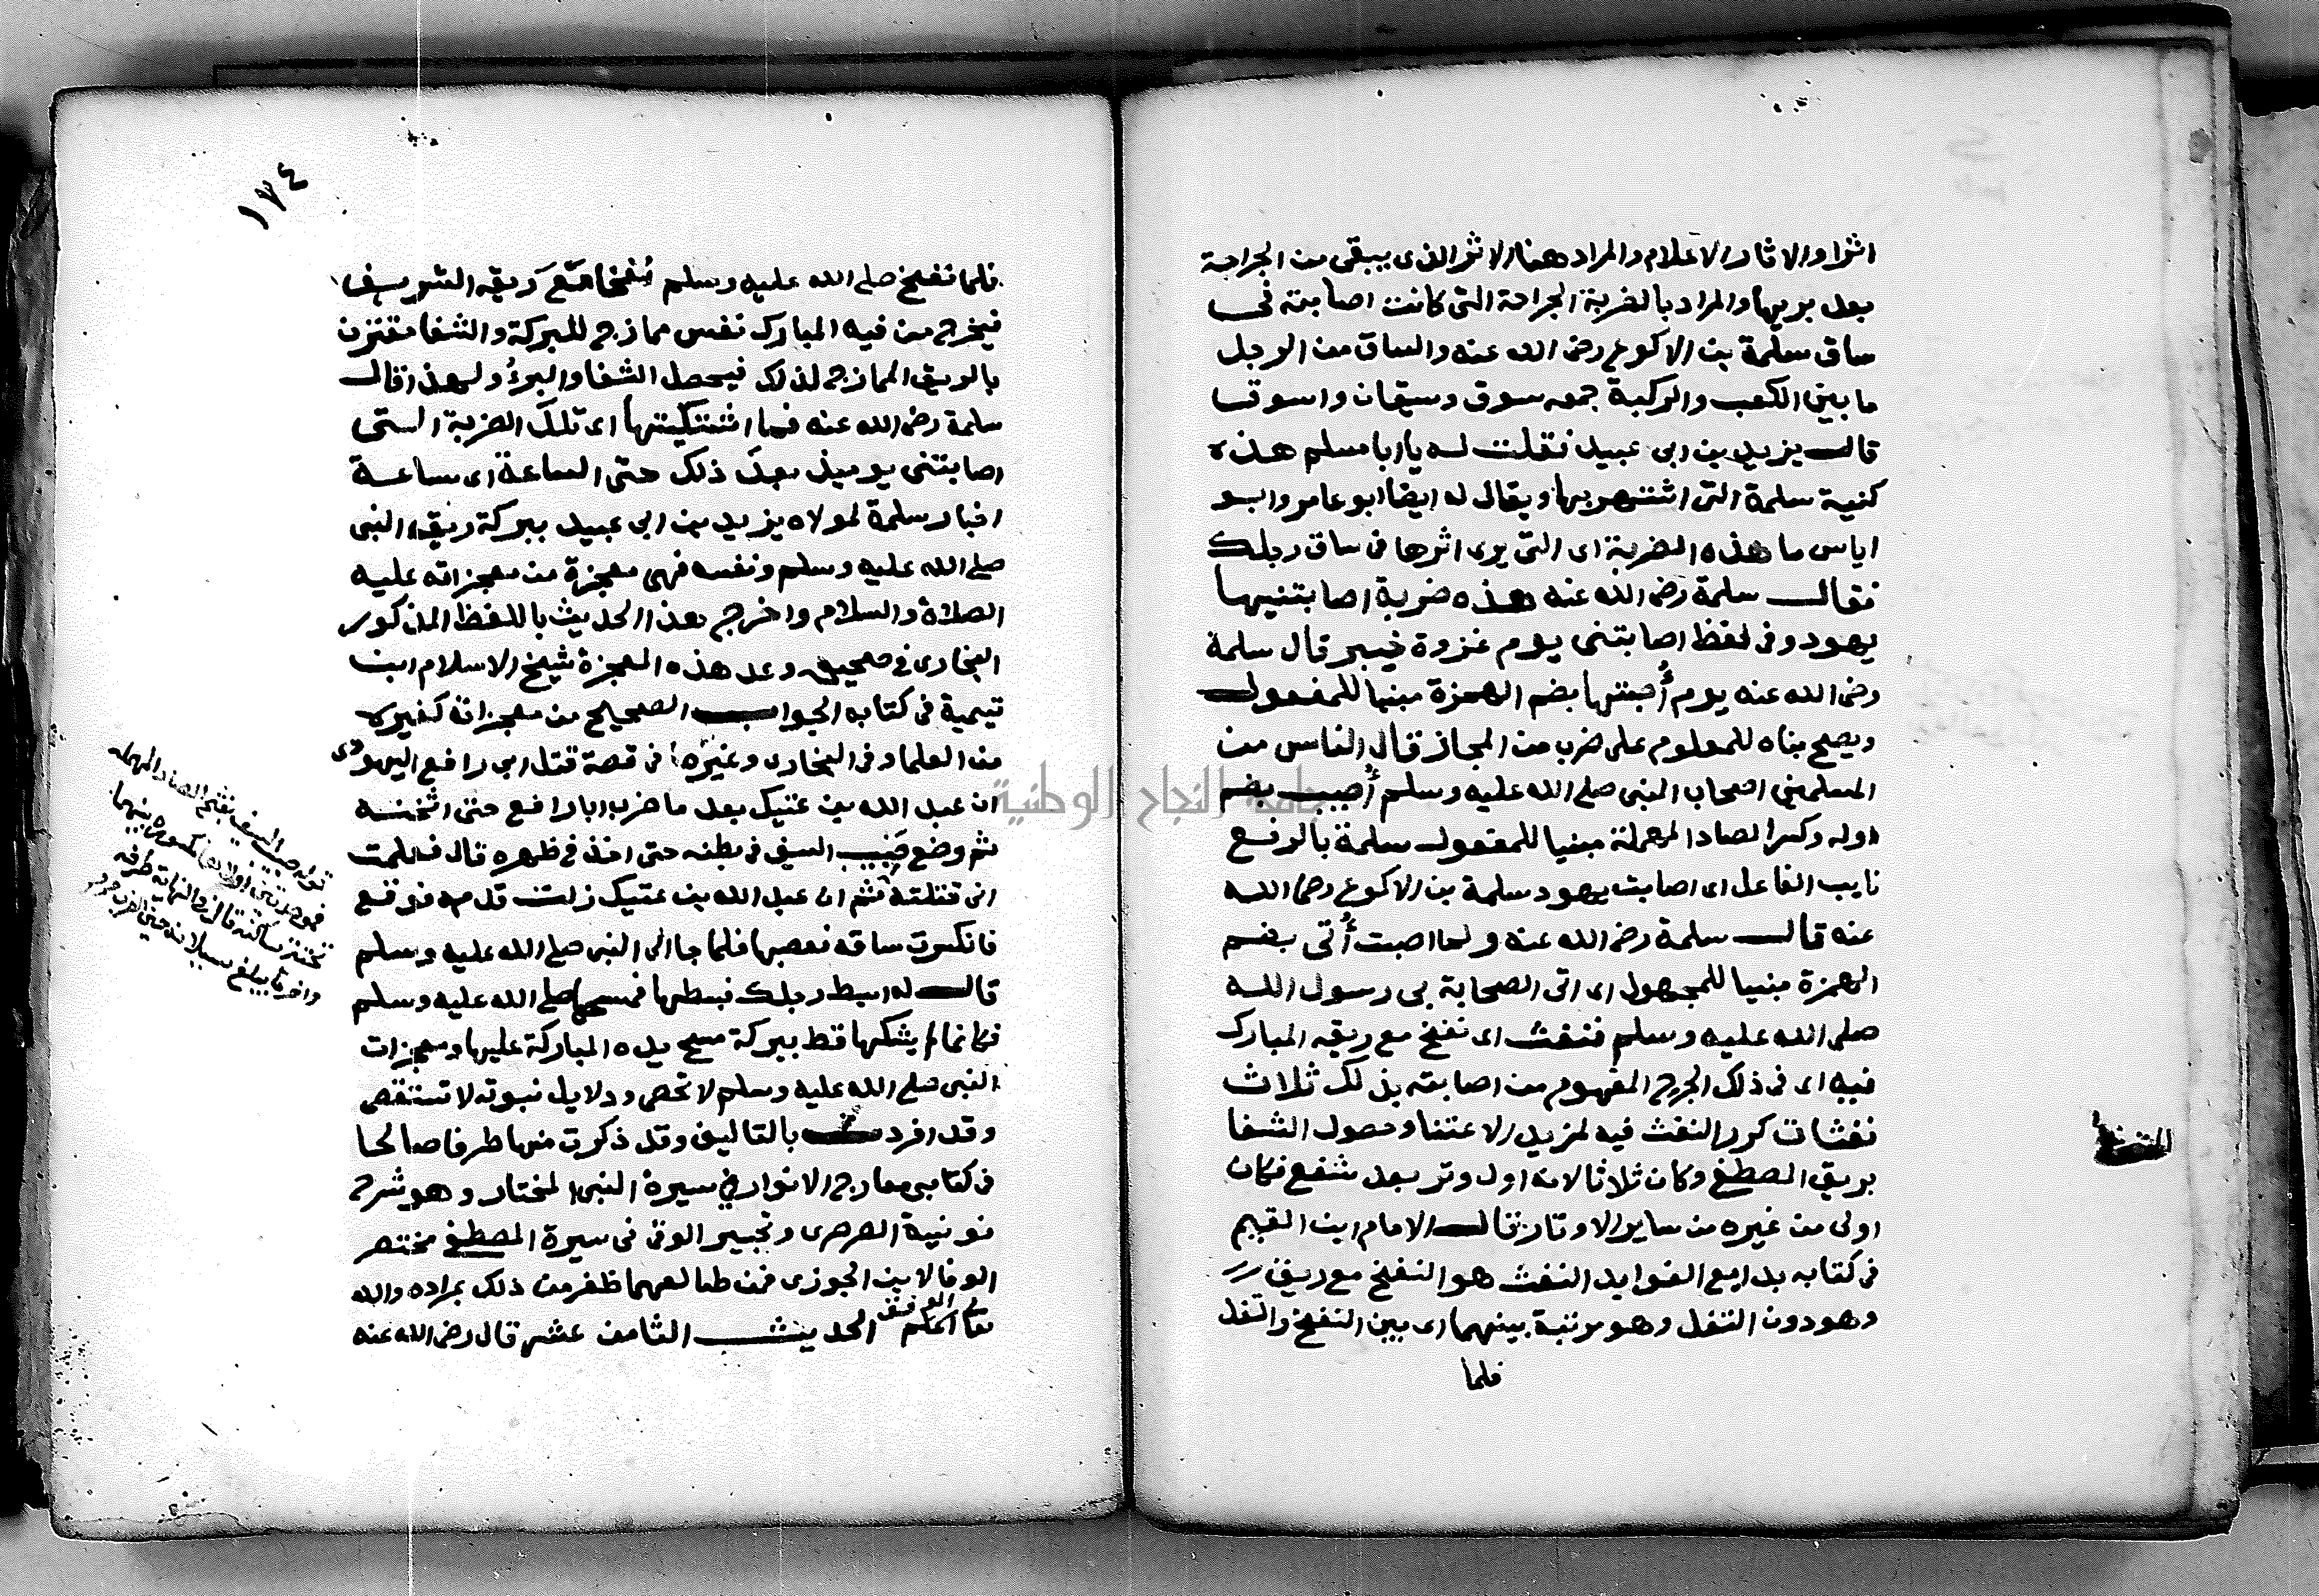 اثرا والاثار الاعلام والمراد هنا الاثر الذى يبقى من الجراحة
بعد بريها والمراد بالضربة الجراحة التى كانت اصابته فى
ساق سلمة بن الاكوع رضى الله عنه والساق من الرجل
ما بين الكعب والركبة جمعه سوق وسيقان واسوق
قال يزيد بن ابى عبيد فقلت له يا ابا مسلم هذه
كنية سلمة التى اشتهر بها ويقال له ايضا ابو عامر وابو
اياس ما هذه الضربة اى التى يرى اثرها فى ساق رجلك
فقال سلمة رضى الله عنه هذه ضربة اصابتنيها
يهود وفى لفظ اصابتنى يوم غزوة خيبر قال سلمة
رضى الله عنه يوم أُصبتها بضم الهمزة مبنيا للمفعول
ويصح بناه للمعلوم على ضرب من المجاز قال الناس من
المسلمين اصحاب النبى صلى الله عليه وسلم أُصيب بضم
اوله وكسر الصاد المهملة مبنيا للمفعول سلمة بالرفع
نايب الفاعل اى اصابت يهود سلمة بن الاكوع رضى الله
عنه قال سلمة رضى الله عنه ولما اصبت أُتى بضم
الهمزة مبنيا للمجهول اى اتى الصحابة بى رسول الله
صلى الله عليه وسلم فنفث اى نفخ مع ريقه المبارك
فيه اى فى ذلك الجرح المفهوم من اصابته بذلك ثلاث
نفثات كرر النفث فيه لمزيد الاعتنا وحصول الشفا
بريق المصطفى وكان ثلاثا لانه اول وتر بعد شفع فكان
اولى من غيره من ساير الاوتار قال الامام ابن القيم
فى كتابه بدايع الفوايد النفث هو النفخ مع ريق
وهو دون التفل وهو مرتبة بينهما اى بين النفخ والتفل
فلما
١٧٤
فلما نفخ صلى الله عليه وسلم نفخا مع ريقه الشريف
فيخرج من فيه المبارك نفس ممازج للبركة والشفا مقترن
بالريق الممازج لذلك فيحصل الشفا والبرءُ ولهذا قال
سلمة رضى الله عنه فما اشتكيتها اى تلك الضربة التى
اصابتنى يوميذ بعد ذلك حتى الساعة اى ساعة
اخبار سلمة لمولاه يزيد بن ابى عبيد ببركة ريق النبى
صلى الله عليه وسلم ونفسه فهى معجزة من معجزاته عليه
الصلاة والسلام واخرج هذا الحديث باللفظ المذكور
البخارى فى صحيحه وعد هذه المعجزة شيخ الاسلام ابن
تيمية فى كتابه الجواب الصحيح من معجزاته كغيره
من العلما وفى البخارى وغيره فى قصة قتل ابى رافع اليهودى
ان عبد الله بن عتيك بعد ما ضرب ابا رافع حتى اثخنه
ثم وضع صبيب السيف فى بطنه حتى اخذ فى ظهره قال فعلمت
انى قتلته ثم ان عبد الله بن عتيك زلت قدمه فوقع
فانكسرت ساقه فعصبها فلما جا الى النبى صلى الله عليه وسلم
قال له ابسط رجلك فبسطها فمسحها صلى الله عليه وسلم
فكانما لم يشكها قط ببركة مسح يده المباركة عليها ومعجزات
النبى صلى الله عليه وسلم لا تحصى ودلايل نبوته لا تستقصى
وقد افردت بالتاليف وقد ذكرت منها طرفا صالحا
فى كتابى معارج الانوار فى سيرة النبى المختار وهو شرح
نونية الصرصرى وتحبير الوفى فى سيرة المصطفى مختصر
الوفا لابن الجوزى فمن طالعهما ظفر من ذلك بمراده والله
تعالى الموفق
اعلم الحديث الثامن عشر قال رضى الله عنه
قوله صبيب السيف بفتح الصاد المهملة
فموحدتين اولاهما مكسورة بينهما
تحتية ساكنة قال فى النهاية طرفه
واخر ما يبلغ سيلانه حين الضرب
جامعة النجاح الوطنية